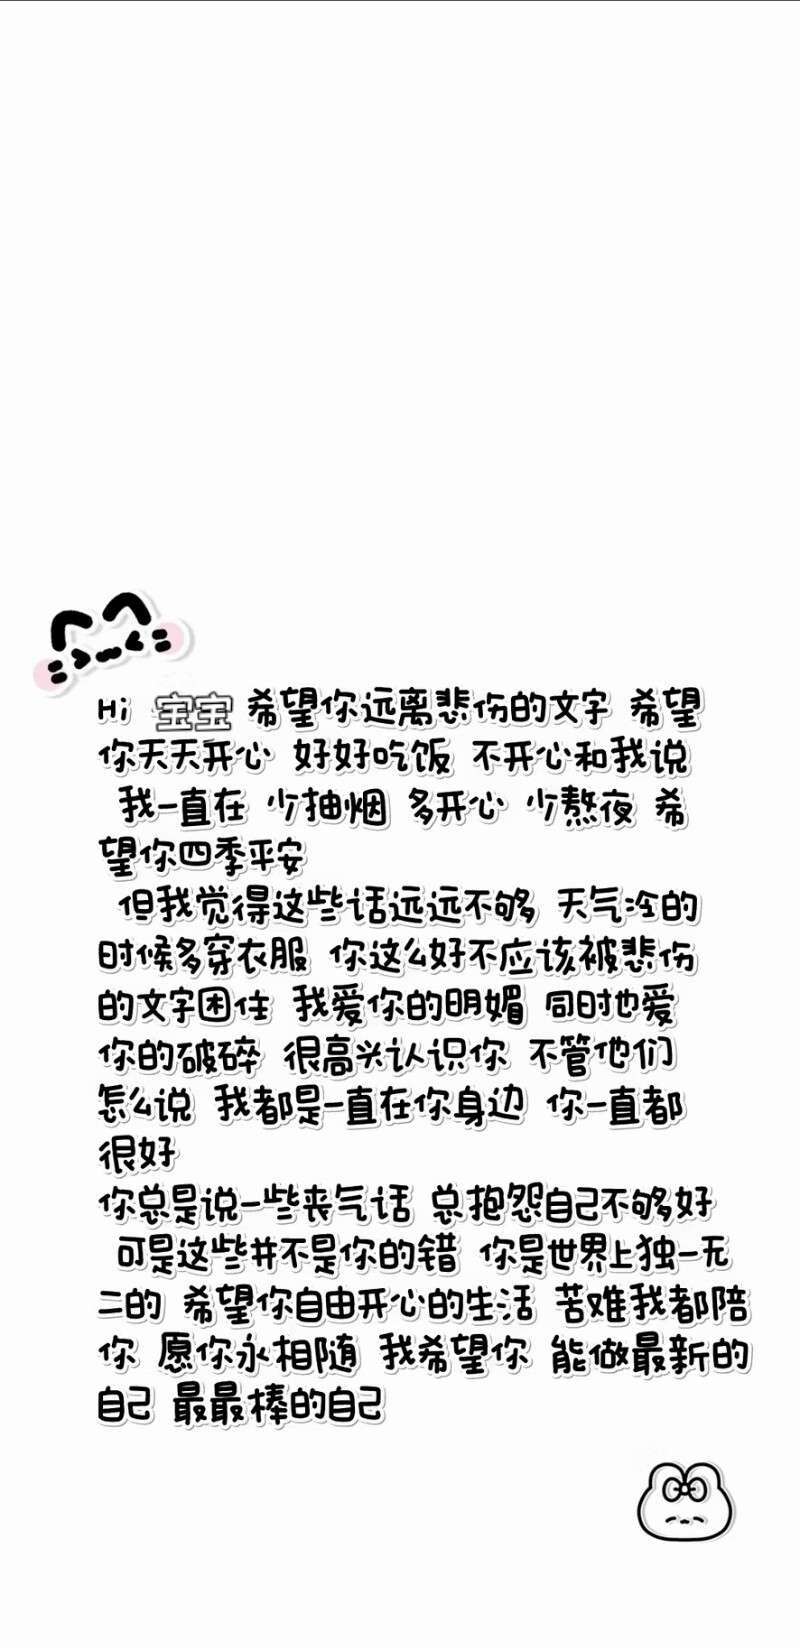 Hi 宝宝 希望你远离悲伤的文字 希望
你天天开心 好好吃饭 不开心和我说
我一直在 少抽烟 多开心 少熬夜 希
望你四季平安
但我觉得这些话远远不够 天气冷的
时候多穿衣服 你这么好不应该被悲伤
的文字困住 我爱你的明媚 同时也爱
你的破碎 很高兴认识你 不管他们
怎么说 我都是一直在你身边 你一直都
很好
你总是说一些丧气话 总抱怨自己不够好
可是这些并不是你的错 你是世界上独一无
二的 希望你自由开心的生活 苦难我都陪
你 愿你永相随 我希望你 能做最新的
自己 最最棒的自己